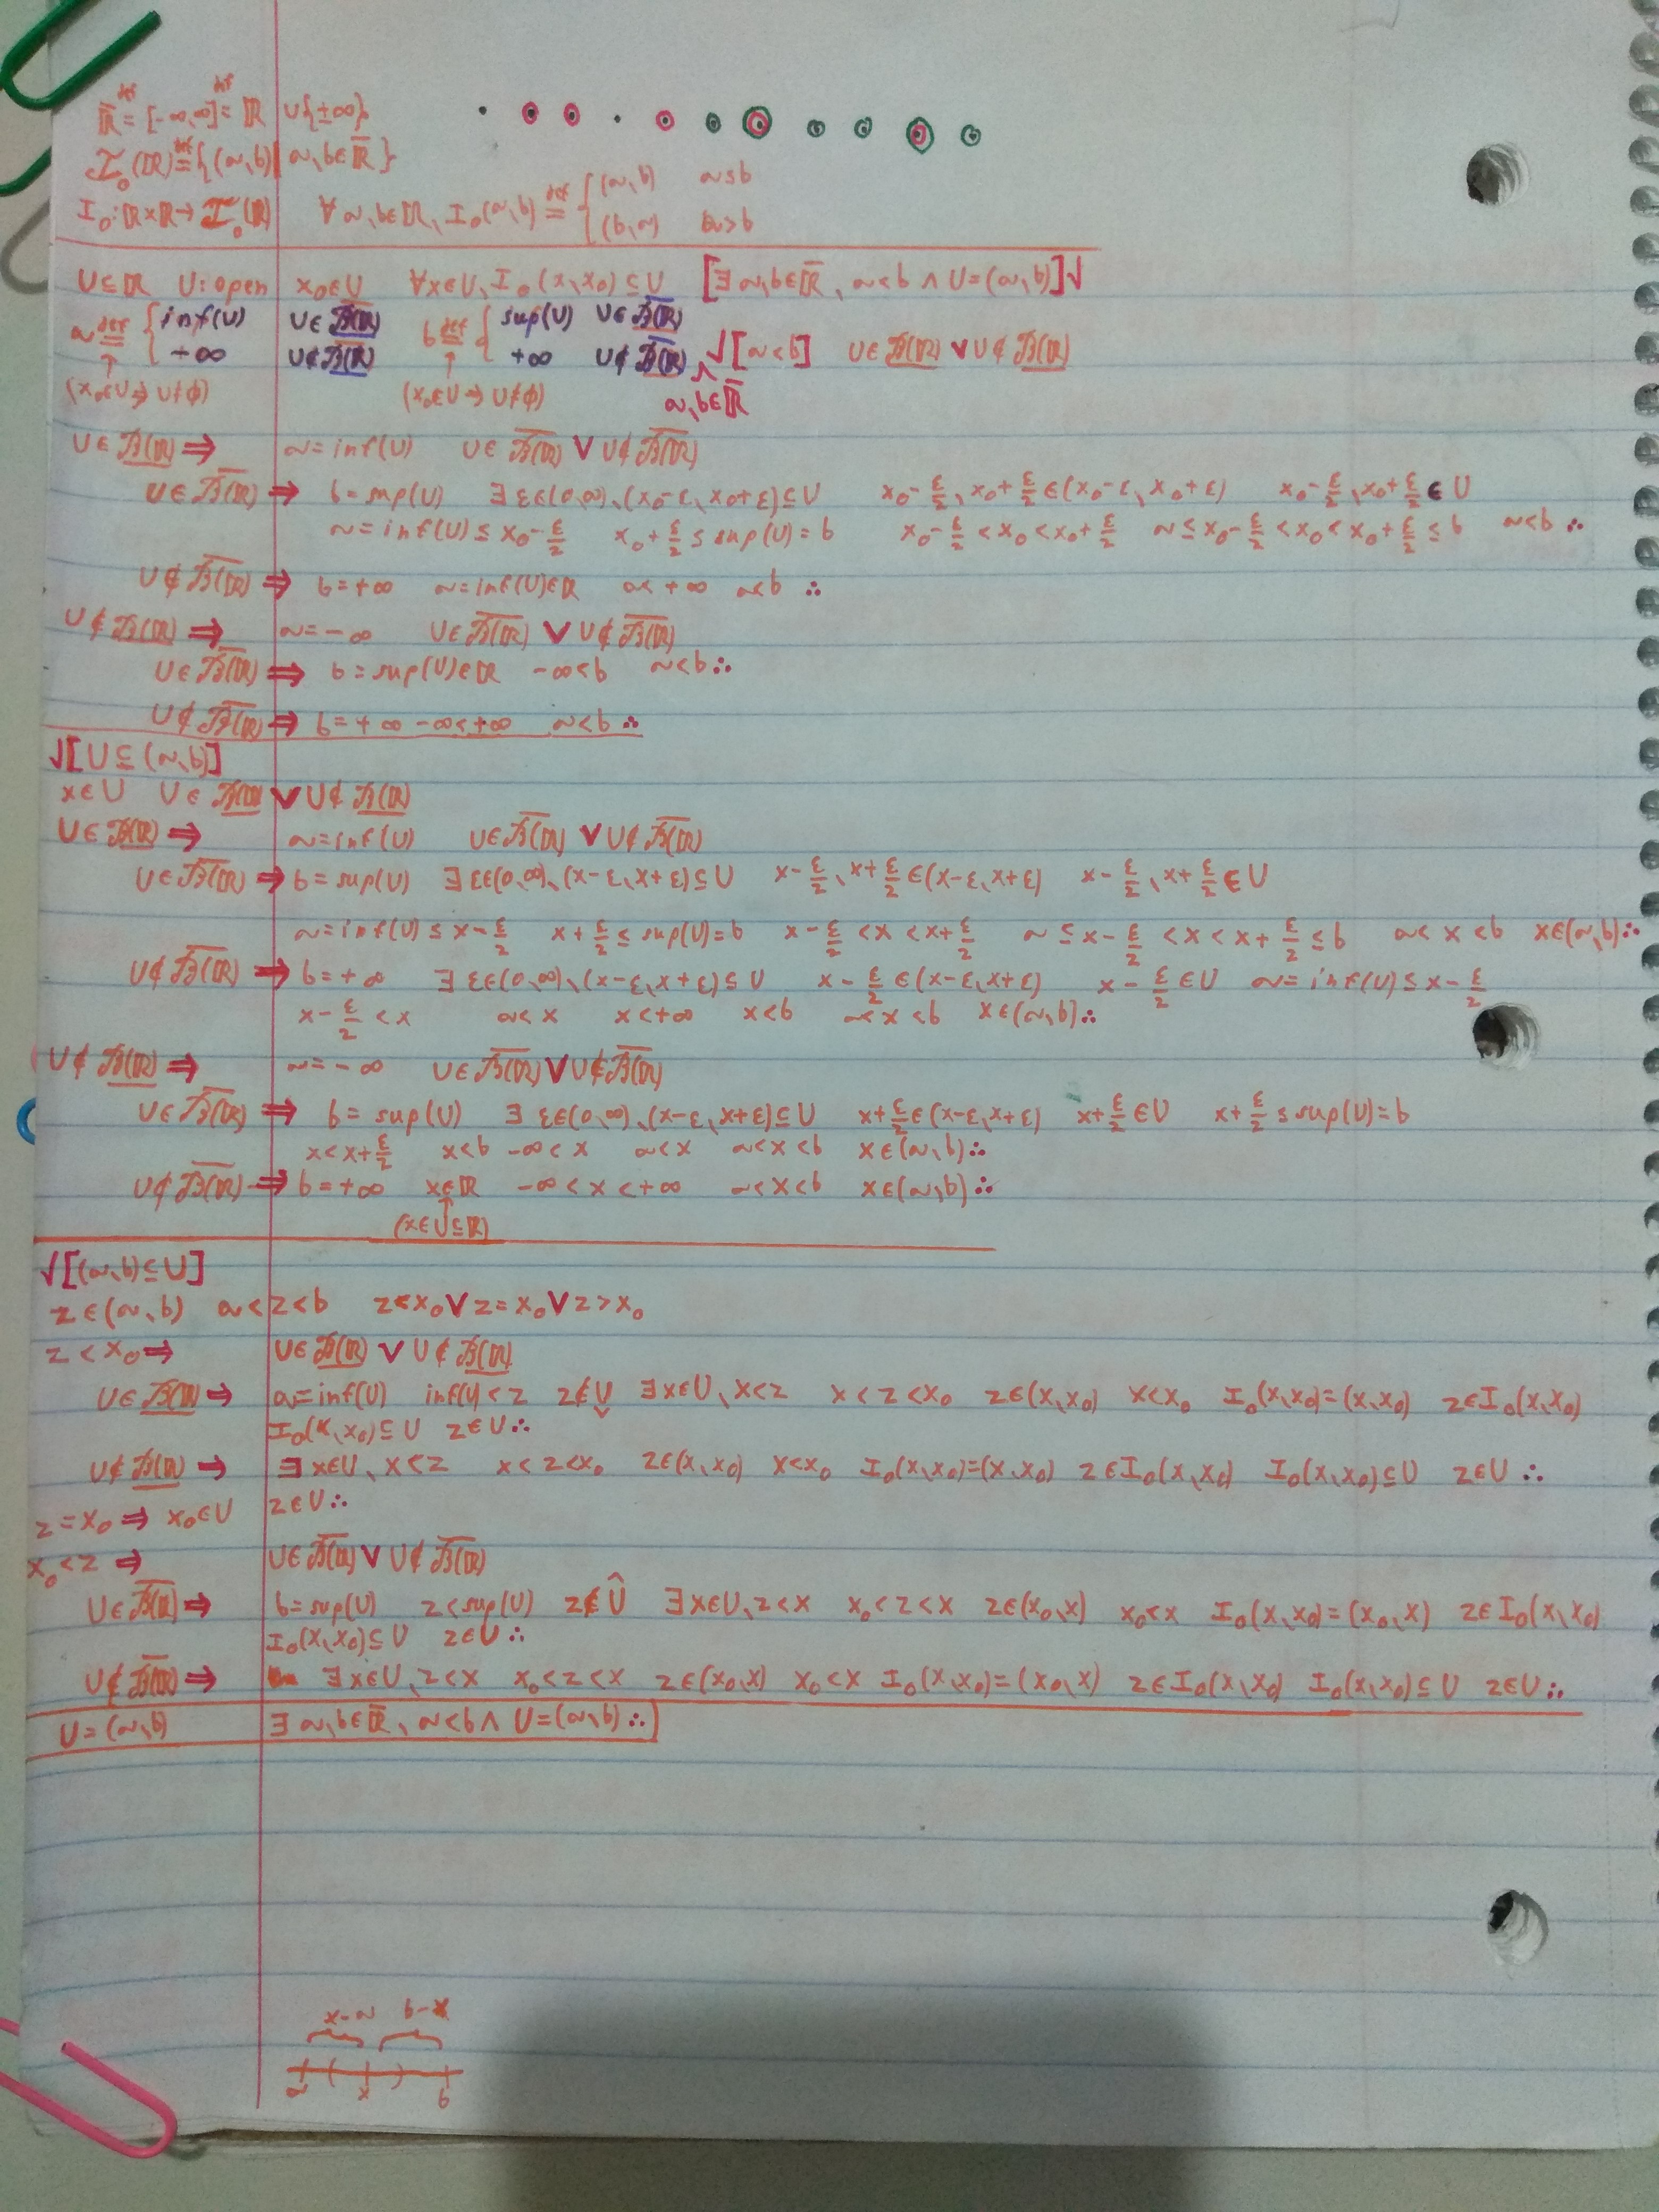 ℝ̄ ≝ [-∞,∞] ≝ ℝ ∪{±∞}
𝓘₀(ℝ) ≝ {(a,b) | a,b∈ℝ̄}
I₀: ℝ×ℝ→𝓘₀(ℝ) ∀a,b∈ℝ, I₀(a,b) ≝ { (a,b) a≤b
(b,a) a>b
U⊆ℝ U:open x₀∈U ∀x∈U, I₀(x,x₀)⊆U [∃a,b∈ℝ̄, a<b ∧ U=(a,b)]✓
a ≝ { inf(U) U∈<u>B(ℝ)</u> b ≝ { sup(U) U∈B̅(̅ℝ̅)̅
+∞ U∉<u>B(ℝ)</u> +∞ U∉B̅(̅ℝ̅)̅ ✓[a<b] U∈<u>B(ℝ)</u> ∨ U∉<u>B(ℝ)</u>
(x₀∈U⇒U≠∅) (x₀∈U⇒U≠∅) ∧ a,b∈ℝ̄
U∈<u>B(ℝ)</u> ⇒ a=inf(U) U∈B̅(̅ℝ̅)̅ ∨ U∉B̅(̅ℝ̅)̅
U∈B̅(̅ℝ̅)̅ ⇒ b=sup(U) ∃ε∈(0,∞), (x₀-ε, x₀+ε)⊆U x₀-ε/2, x₀+ε/2∈(x₀-ε, x₀+ε) x₀-ε/2, x₀+ε/2∈U
a=inf(U)≤x₀-ε/2 x₀+ε/2≤sup(U)=b x₀-ε/2<x₀<x₀+ε/2 a≤x₀-ε/2<x₀<x₀+ε/2≤b a<b ∴
U∉B̅(̅ℝ̅)̅ ⇒ b=+∞ a=inf(U)∈ℝ a<+∞ a<b ∴
U∉<u>B(ℝ)</u> ⇒ a=-∞ U∈B̅(̅ℝ̅)̅ ∨ U∉B̅(̅ℝ̅)̅
U∈B̅(̅ℝ̅)̅ ⇒ b=sup(U)∈ℝ -∞<b a<b ∴
U∉B̅(̅ℝ̅)̅ ⇒ b=+∞ -∞<+∞ a<b ∴
✓[U⊆(a,b)]
x∈U U∈<u>B(ℝ)</u> ∨ U∉<u>B(ℝ)</u>
U∈<u>B(ℝ)</u> ⇒ a=inf(U) U∈B̅(̅ℝ̅)̅ ∨ U∉B̅(̅ℝ̅)̅
U∈B̅(̅ℝ̅)̅ ⇒ b=sup(U) ∃ε∈(0,∞), (x-ε, x+ε)⊆U x-ε/2, x+ε/2∈(x-ε, x+ε) x-ε/2, x+ε/2∈U
a=inf(U)≤x-ε/2 x+ε/2≤sup(U)=b x-ε/2<x<x+ε/2 a≤x-ε/2<x<x+ε/2≤b a<x<b x∈(a,b)∴
U∉B̅(̅ℝ̅)̅ ⇒ b=+∞ ∃ε∈(0,∞), (x-ε, x+ε)⊆U x-ε/2∈(x-ε, x+ε) x-ε/2∈U a=inf(U)≤x-ε/2
x-ε/2<x a<x x<+∞ x<b a<x<b x∈(a,b)∴
U∉<u>B(ℝ)</u> ⇒ a=-∞ U∈B̅(̅ℝ̅)̅ ∨ U∉B̅(̅ℝ̅)̅
U∈B̅(̅ℝ̅)̅ ⇒ b=sup(U) ∃ε∈(0,∞), (x-ε, x+ε)⊆U x+ε/2∈(x-ε, x+ε) x+ε/2∈U x+ε/2≤sup(U)=b
x<x+ε/2 x<b -∞<x a<x a<x<b x∈(a,b)∴
U∉B̅(̅ℝ̅)̅ ⇒ b=+∞ x∈ℝ -∞<x<+∞ a<x<b x∈(a,b)∴
(x∈U⊆ℝ)
✓[(a,b)⊆U]
z∈(a,b) a<z<b z<x₀ ∨ z=x₀ ∨ z>x₀
z<x₀ ⇒ U∈<u>B(ℝ)</u> ∨ U∉<u>B(ℝ)</u>
U∈<u>B(ℝ)</u> ⇒ a=inf(U) inf(U)<z z∉U̬ ∃x∈U, x<z x<z<x₀ z∈(x,x₀) x<x₀ I₀(x,x₀)=(x,x₀) z∈I₀(x,x₀)
I₀(x,x₀)⊆U z∈U∴
U∉<u>B(ℝ)</u> ⇒ ∃x∈U, x<z x<z<x₀ z∈(x,x₀) x<x₀ I₀(x,x₀)=(x,x₀) z∈I₀(x,x₀) I₀(x,x₀)⊆U z∈U ∴
z=x₀ ⇒ x₀∈U z∈U∴
x₀<z ⇒ U∈B̅(̅ℝ̅)̅ ∨ U∉B̅(̅ℝ̅)̅
U∈B̅(̅ℝ̅)̅ ⇒ b=sup(U) z<sup(U) z∉Û ∃x∈U, z<x x₀<z<x z∈(x₀,x) x₀<x I₀(x,x₀)=(x₀,x) z∈I₀(x,x₀)
I₀(x,x₀)⊆U z∈U∴
U∉B̅(̅ℝ̅)̅ ⇒ ∃x∈U, z<x x₀<z<x z∈(x₀,x) x₀<x I₀(x,x₀)=(x₀,x) z∈I₀(x,x₀) I₀(x,x₀)⊆U z∈U∴
U=(a,b) ∃a,b∈ℝ̄, a<b ∧ U=(a,b)∴
x-a b-x
a x b